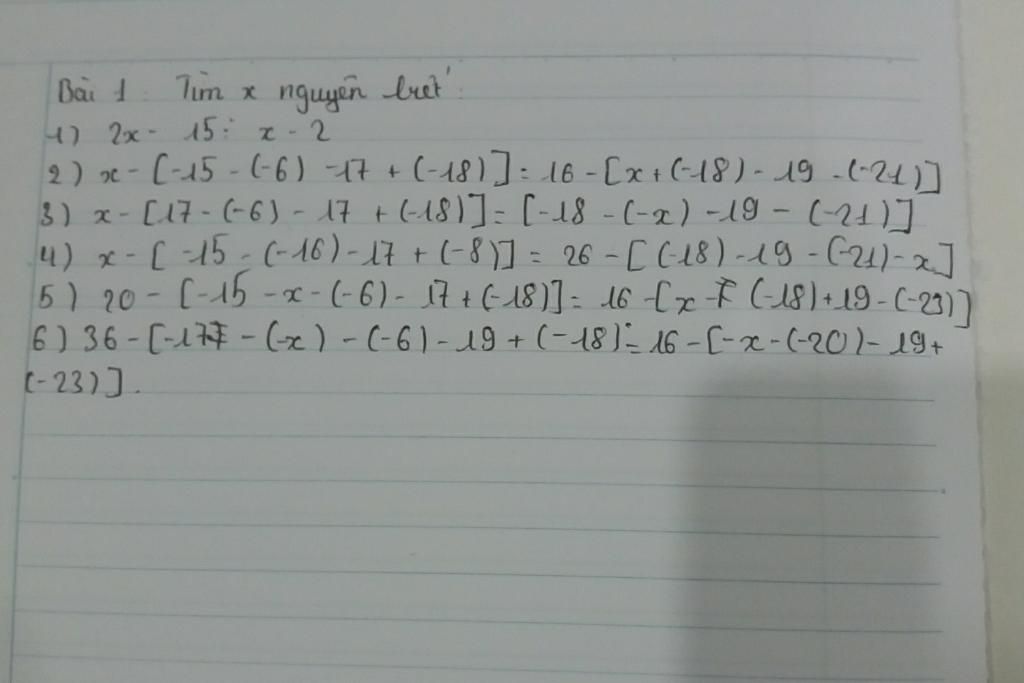 Bài 1: Tìm x nguyên biết:
1) 2x - 15 = x - 2
2) x - [-15 - (-6) - 17 + (-18)] = 16 - [x + (-18) - 19 - (-21)]
3) x - [17 - (-6) - 17 + (-18)] = [-18 - (-x) - 19 - (-21)]
4) x - [-15 - (-16) - 17 + (-8)] = 26 - [(-18) - 19 - (-21) - x]
5) 20 - [-15 - x - (-6) - 17 + (-18)] = 16 - [x - (-18) + 19 - (-23)]
6) 36 - [-17 - (-x) - (-6) - 19 + (-18) = 16 - [-x - (-20) - 19 +
(-23)].